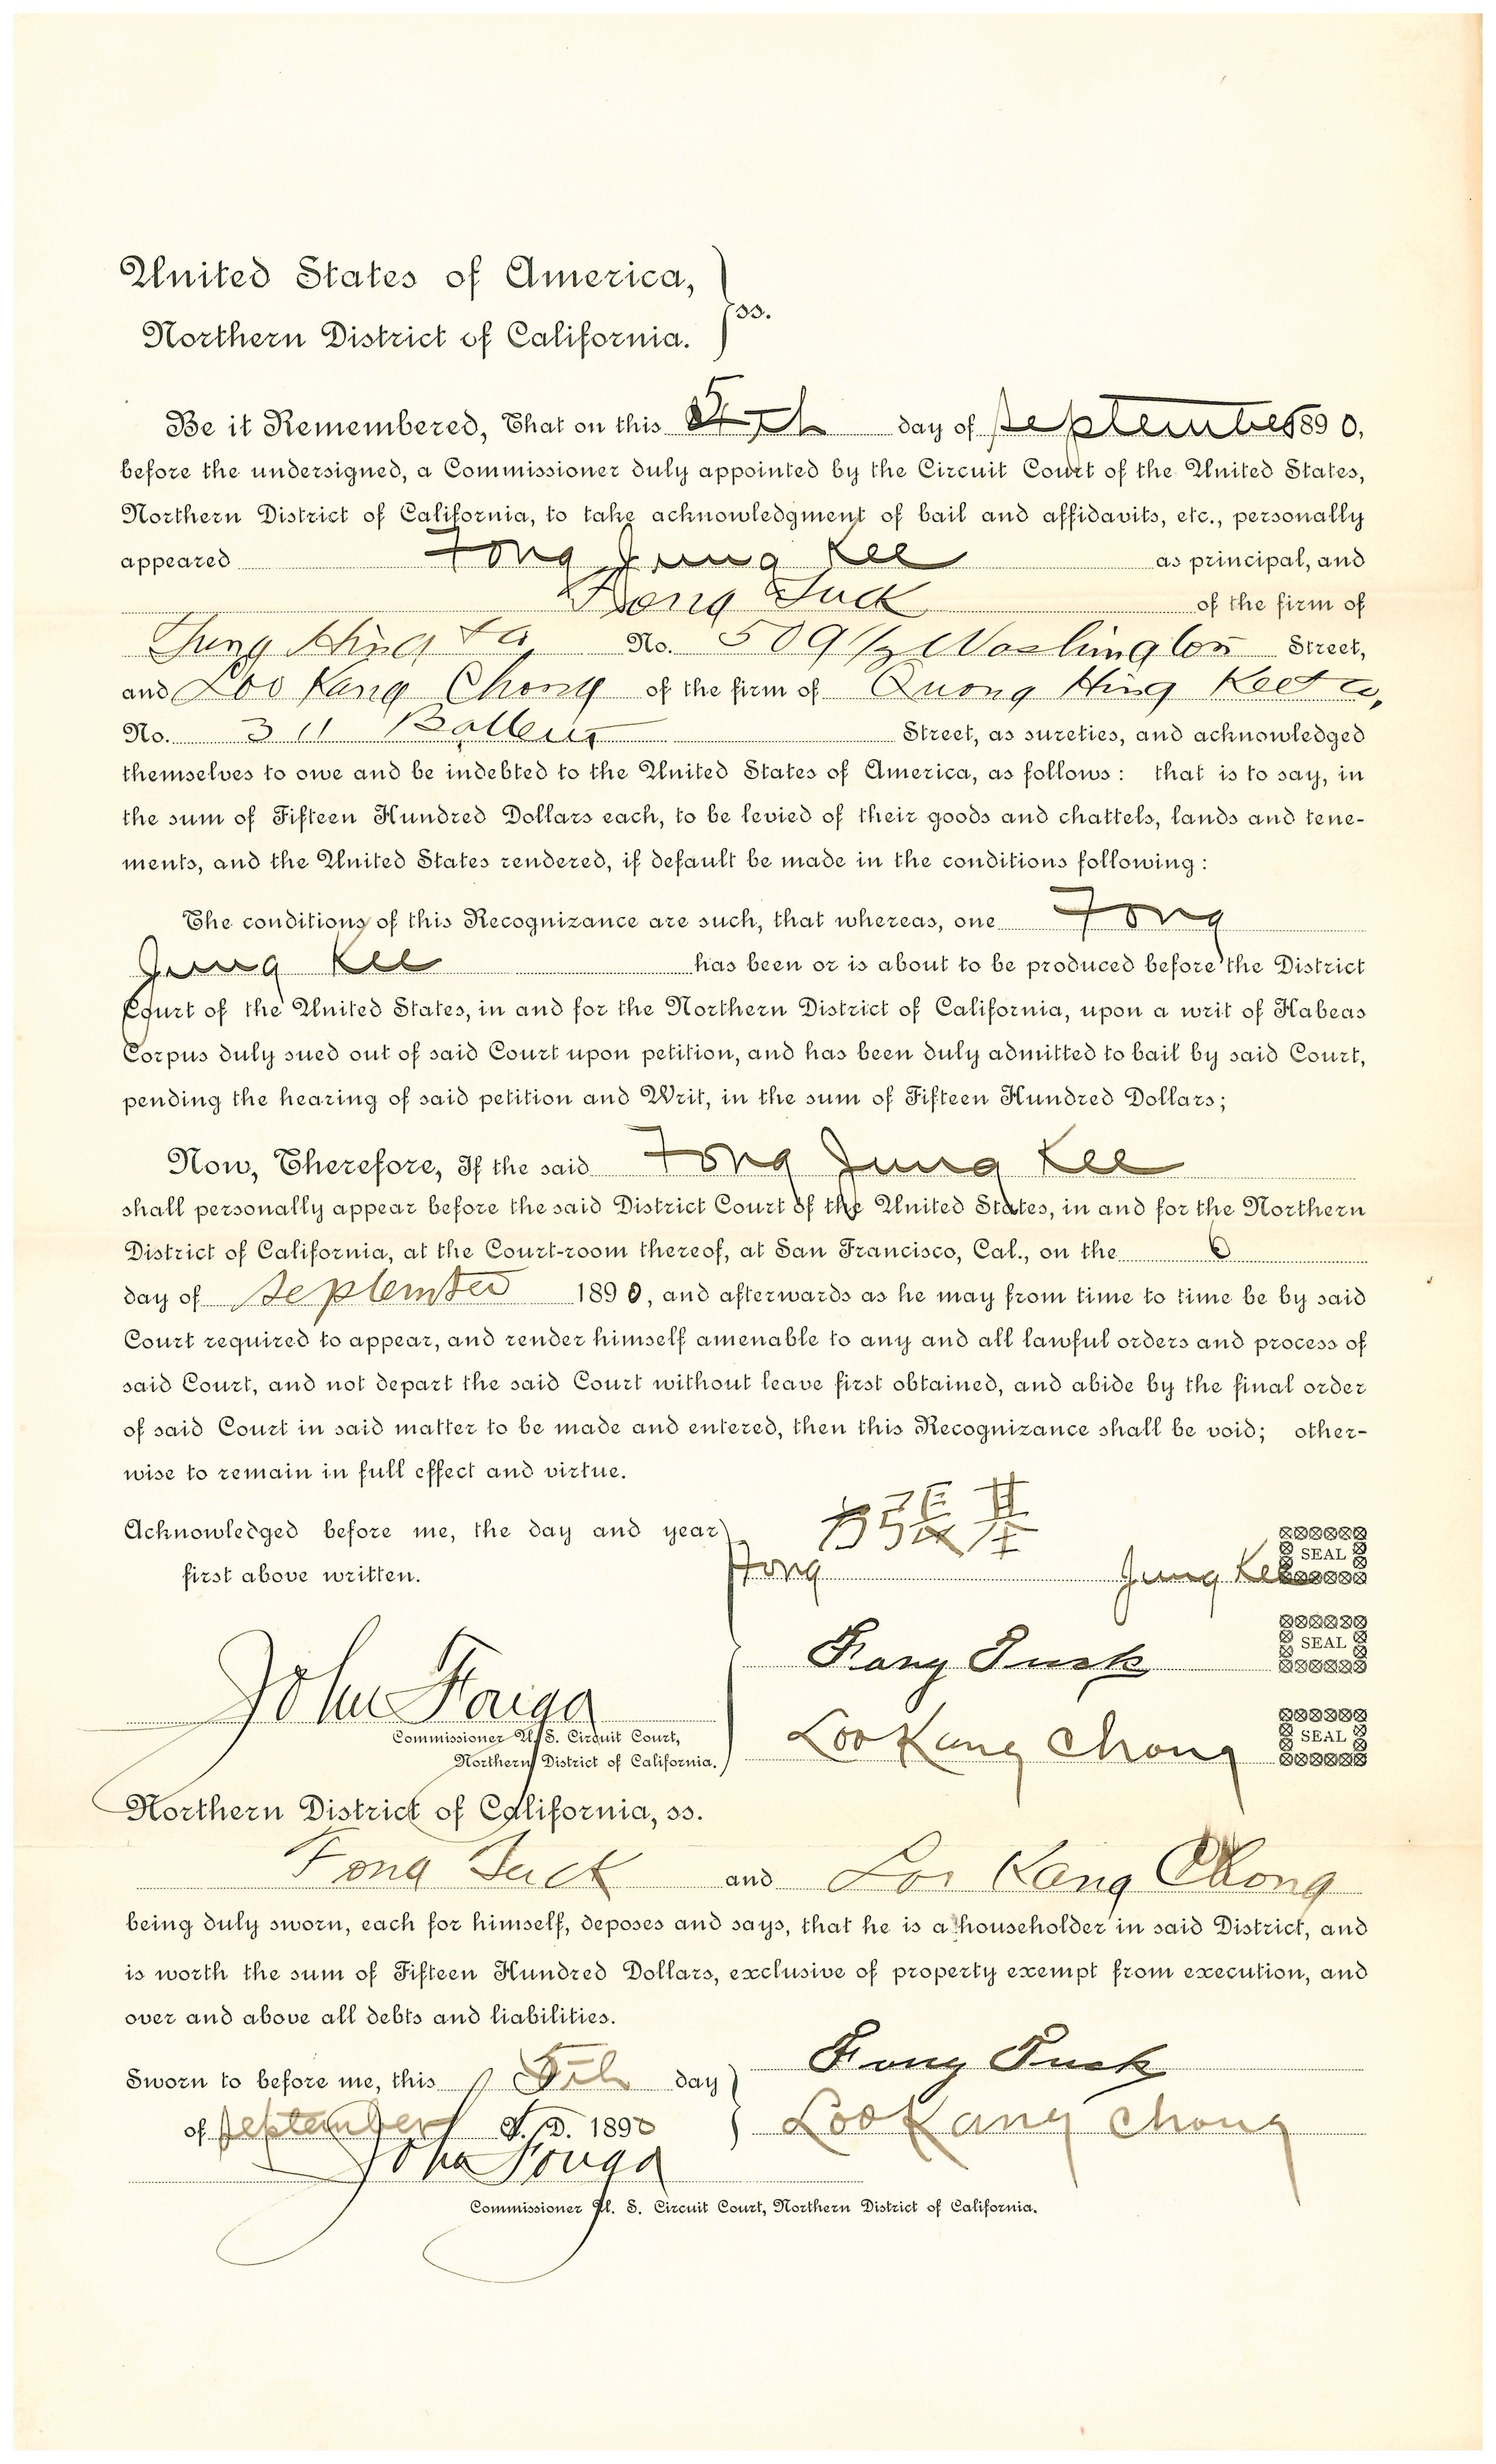 United States of America,
Northern District of California. } ss.
Be it Remembered, That on this 5th day of September 1890,
before the undersigned, a Commissioner duly appointed by the Circuit Court of the United States,
Northern District of California, to take acknowledgment of bail and affidavits, etc., personally
appeared Fong Jung Kee as principal, and
Fong Tuck of the firm of
Tung Hing & Co No. 509 1/2 Washington Street,
and Loo Kang Chong of the firm of Quong Hing Kee & Co,
No. 311 Battery Street, as sureties, and acknowledged
themselves to owe and be indebted to the United States of America, as follows: that is to say, in
the sum of Fifteen Hundred Dollars each, to be levied of their goods and chattels, lands and tene-
ments, and the United States rendered, if default be made in the conditions following:
The conditions of this Recognizance are such, that whereas, one Fong
Jung Kee has been or is about to be produced before the District
Court of the United States, in and for the Northern District of California, upon a writ of Habeas
Corpus duly sued out of said Court upon petition, and has been duly admitted to bail by said Court,
pending the hearing of said petition and Writ, in the sum of Fifteen Hundred Dollars;
Now, Therefore, If the said Fong Jung Kee
shall personally appear before the said District Court of the United States, in and for the Northern
District of California, at the Court-room thereof, at San Francisco, Cal., on the 6
day of September 1890, and afterwards as he may from time to time be by said
Court required to appear, and render himself amenable to any and all lawful orders and process of
said Court, and not depart the said Court without leave first obtained, and abide by the final order
of said Court in said matter to be made and entered, then this Recognizance shall be void; other-
wise to remain in full effect and virtue.
方張基
Acknowledged before me, the day and year
first above written.
Fong Jung Kee SEAL
Fong Tuck SEAL
John Fouga
Commissioner U. S. Circuit Court,
Northern District of California.
Loo Kang Chong SEAL
Northern District of California, ss.
Fong Tuck and Loo Kang Chong
being duly sworn, each for himself, deposes and says, that he is a householder in said District, and
is worth the sum of Fifteen Hundred Dollars, exclusive of property exempt from execution, and
over and above all debts and liabilities.
Sworn to before me, this 5th day
of September A. D. 1890
Fong Tuck
Loo Kang Chong
John Fouga
Commissioner U. S. Circuit Court, Northern District of California.